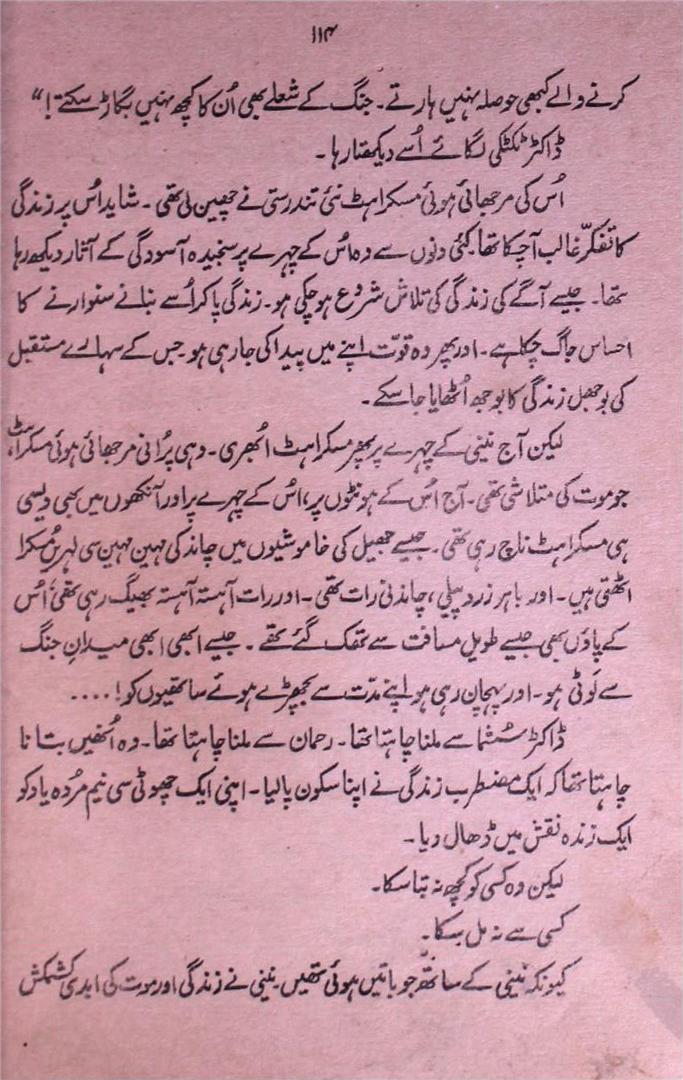 ۱۱۴
کرنے والے کبھی حوصلہ نہیں ہارتے۔ جنگ کے شعلے بھی اُن کا کچھ نہیں بگاڑ سکتے!“
ڈاکٹر ٹکٹکی لگائے اُسے دیکھتا رہا۔
اُس کی مرجھائی ہوئی مسکراہٹ نئی تندرستی نے چھین لی تھی۔ شاید اُس پر زندگی
کا تفکّر غالب آچکا تھا۔ کئی دنوں سے وہ اُس کے چہرے پر سنجیدہ آسودگی کے آثار دیکھ رہا
تھا۔ جیسے آگے کی زندگی کی تلاش شروع ہوچکی ہو۔ زندگی پاکر اُسے بنانے سنوارنے کا
احساس جاگ چکا ہے۔ اور پھر وہ قوّت اپنے میں پیدا کی جارہی ہو جس کے سہارے مستقبل
کی بوجھل زندگی کا بوجھ اُٹھایا جاسکے۔
لیکن آج نینی کے چہرے پر پھر مسکراہٹ اُبھری۔ وہی پُرانی مرجھائی ہوئی مسکراہٹ،
جو موت کی متلاشی تھی۔ آج اُس کے ہونٹوں پر، اُس کے چہرے پر اور آنکھوں میں بھی ویسی
ہی مسکراہٹ ناچ رہی تھی۔ جیسے جھیل کی خاموشیوں میں چاند کی مہین مہین سی لہریں مُسکرا
اٹھتی ہیں۔ اور باہر زرد پیلی، چاندنی رات تھی۔ اور رات آہستہ آہستہ بھیگ رہی تھی، اُس
کے پاؤں بھی جیسے طویل مسافت سے تھک گئے تھے۔ جیسے ابھی ابھی میدانِ جنگ
سے لَوٹی ہو۔ اور پہچان رہی ہو اپنے مدّت سے بچھڑے ہوئے ساتھیوں کو!....
ڈاکٹر سُشما سے ملنا چاہتا تھا۔ رحمان سے ملنا چاہتا تھا۔ وہ اُنھیں بتانا
چاہتا تھا کہ ایک مضطرب زندگی نے اپنا سکون پالیا۔ اپنی ایک چھوٹی سی نیم مُردہ یاد کو
ایک زندہ نقش میں ڈھال دیا۔
لیکن وہ کسی کو کچھ نہ بتا سکا۔
کسی سے نہ مل سکا۔
کیونکہ نینی کے ساتھ جو باتیں ہوئی تھیں۔ نینی نے زندگی اور موت کی ابدی کشمکش